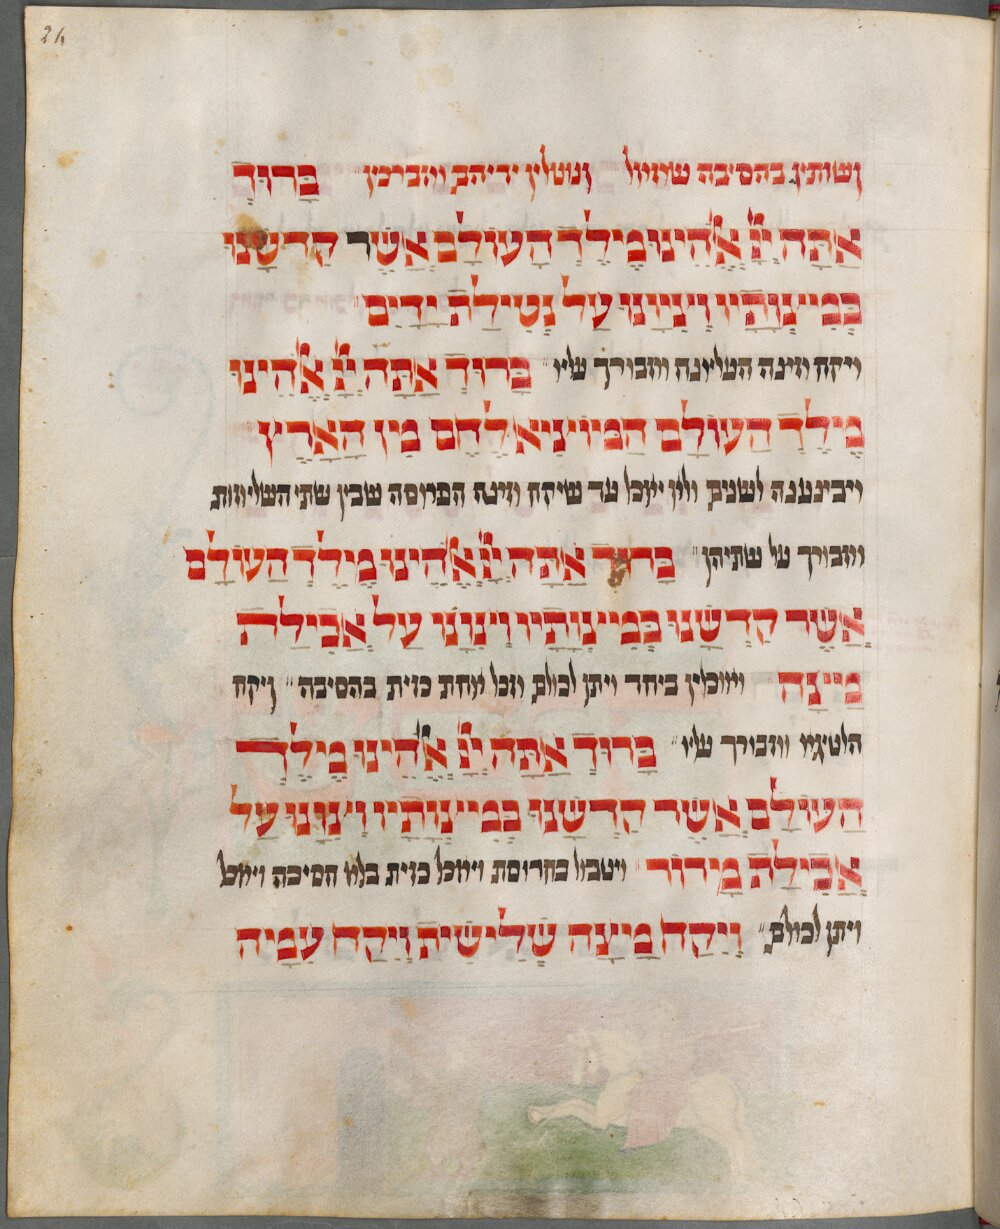 24
ושותין בהסיבה שמאל ונוטלין ידיהם ומברכין בָּרוּךְ
אַתָּה יְיָ אֱלֹהֵינוּ מֶלֶךְ הָעוֹלָם אֲשֶׁר קִדְשָׁנוּ
בְּמִיצְוֹתָיו וְצִיוָנוּ עַל נְטִילַת יָדַיִם
ויקח מצה העליונה ומברך עליו בָּרוּךְ אַתָּה יְיָ אֱלֹהֵינוּ
מֶלֶךְ הָעוֹלָם הַמּוֹצִיא לֶחֶם מִן הָאָרֶץ
ויבצענה לשנים ולא יאכל עד שיקח מצה הפרוסה שבין שתי השלימות
ומברך על שתיהן בָּרוּךְ אַתָּה יְיָ אֱלֹהֵינוּ מֶלֶךְ הָעוֹלָם
אֲשֶׁר קִדְשָׁנוּ בְּמִיצְוֹתָיו וְצִוָנוּ עַל אֲכִילַת
מַצָּה ויאכלין ביחד ויתן לכולם מכל אחת כזית בהסיבה ויקח
הלטיגא ומברך עליו בָּרוּךְ אַתָּה יְיָ אֱלֹהֵינוּ מֶלֶךְ
הָעוֹלָם אֲשֶׁר קִדְשָׁנוּ בְּמִיצְוֹתָיו וְצִוָנוּ עַל
אֲכִילַת מָרוֹר ויטבול בחרוסת ויאכל כזית בלא הסיבה ויאכל
ויתן לכולם וְיִקַח מַצָה שְׁלִישִׁית וְיִקַח עִמָהּ